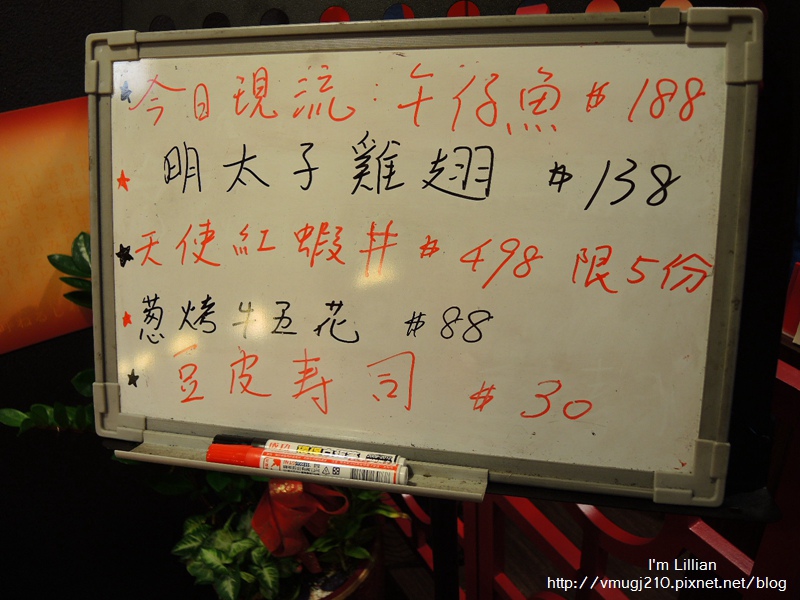 今日現流:午仔魚 # 188
明太子雞翅 # 138
天使紅蝦丼 # 498 限5份
蔥烤牛五花 # 88
豆皮壽司 # 30
I'm Lillian
http://vmugj210.pixnet.net/blog